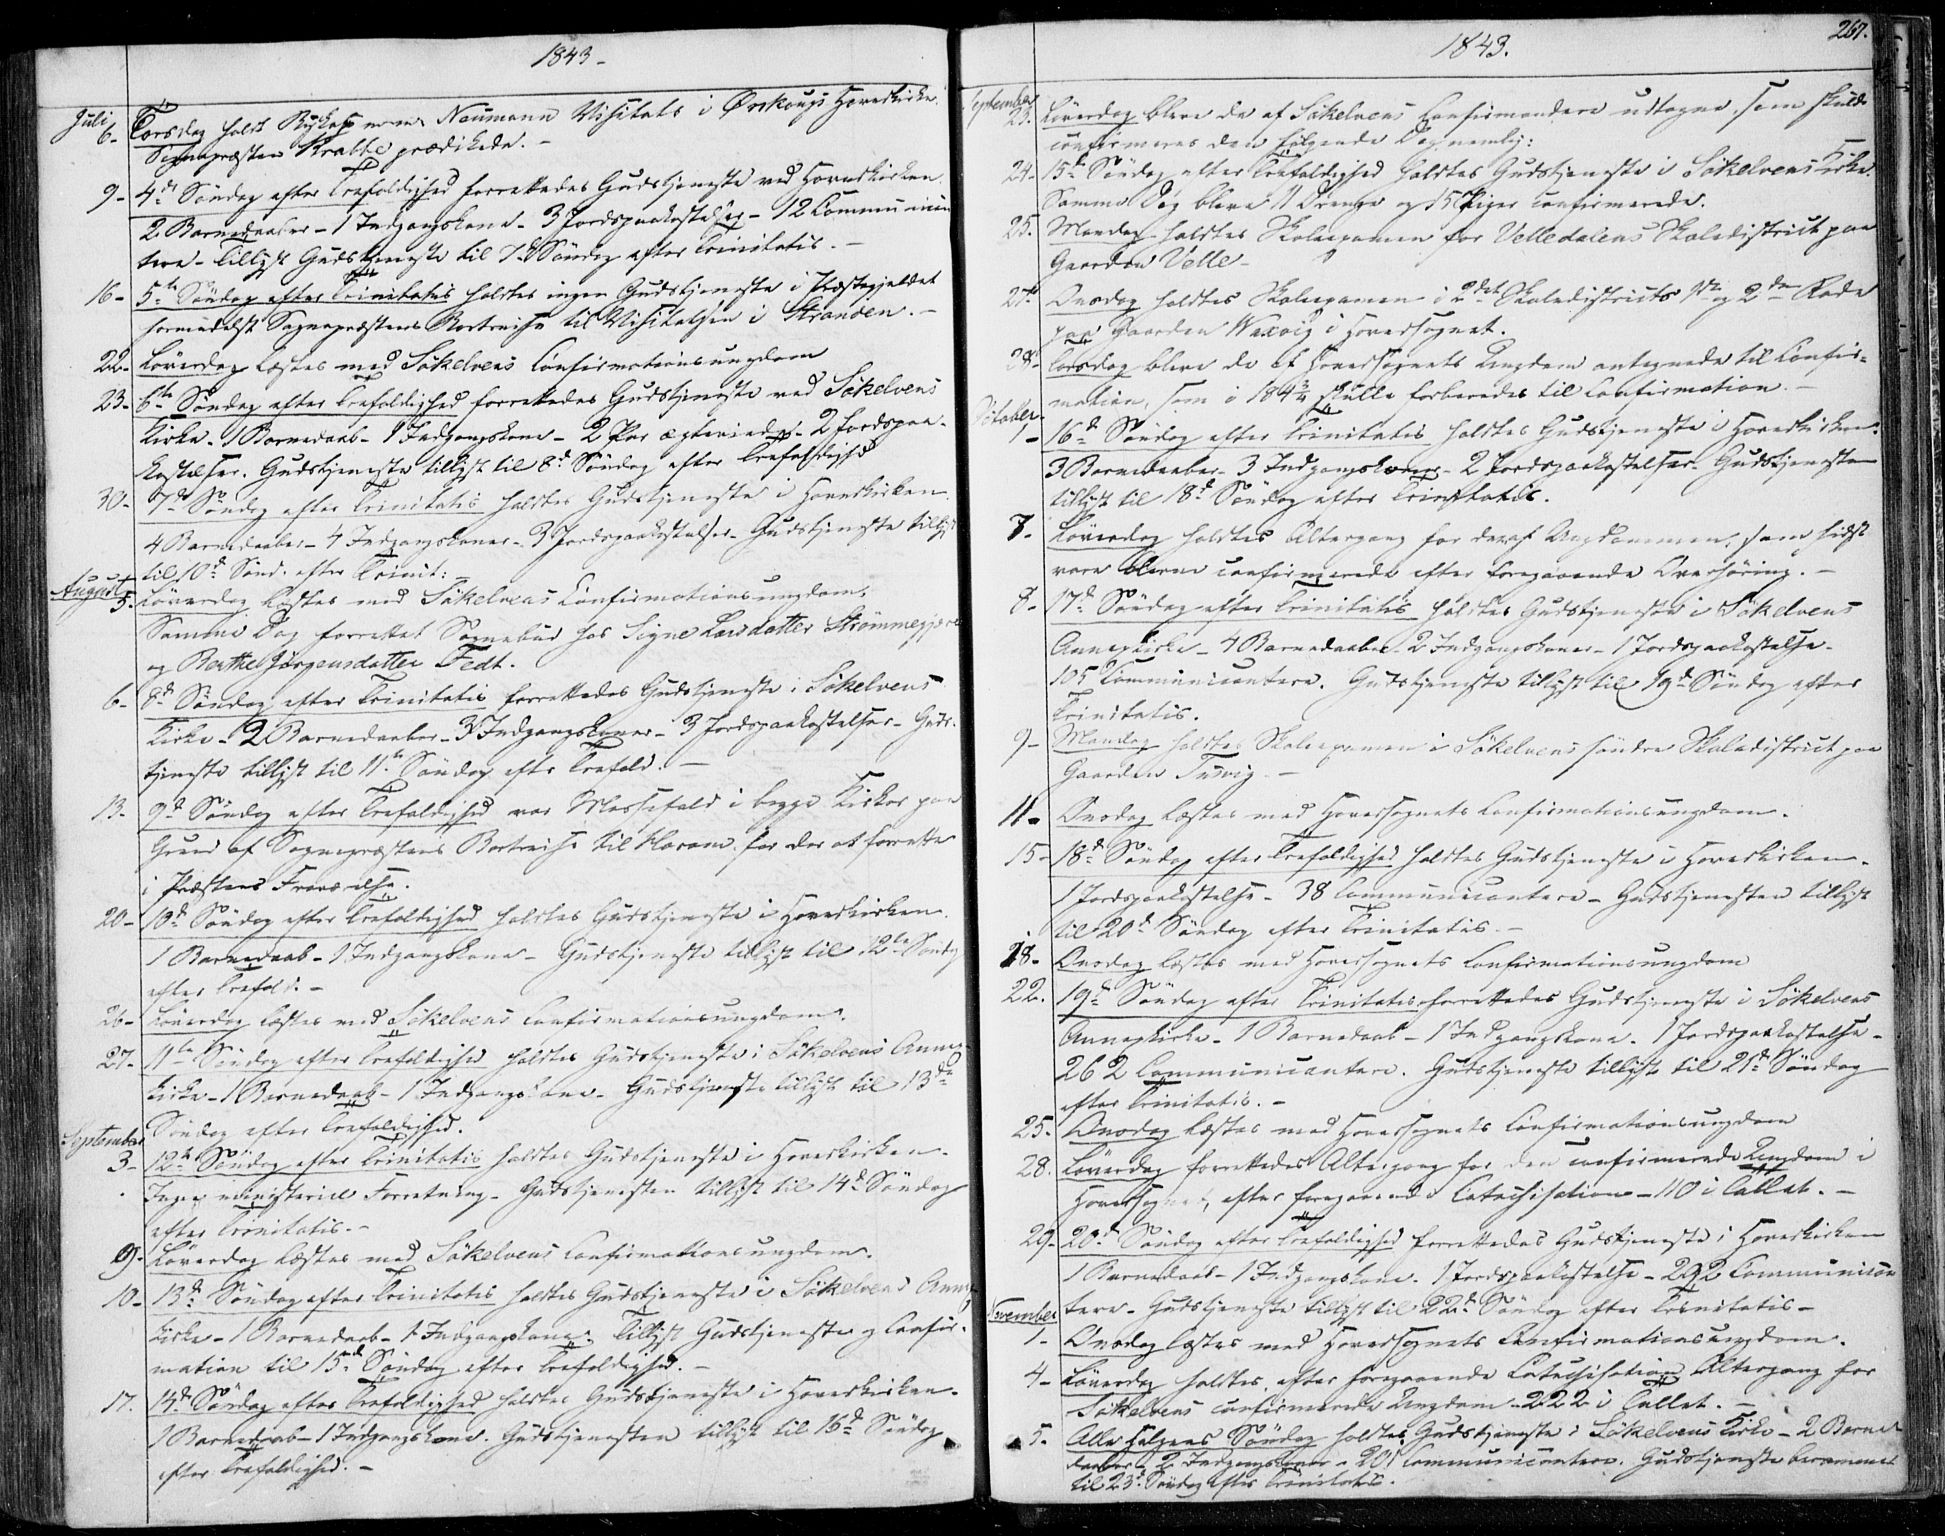 1843-
Juli
6- Torsdag holdt Biskop Neumann Visitats i Ørskougs Hovedkirke.
Sognepræsten Krabbe prædikede. -
9- 4de Søndag efter Trefoldighed forrettedes Gudstjeneste ved Hovedkirken
2 Barnedaaber - 1 Indgangskone - 3 Jordspaakastelser - 12 Communican
tere - Tillyst Gudstjeneste til 7de Søndag efter Trinitatis. -
16- 5te Søndag efter Trinitatis holdtes ingen Gudstjeneste i Præstegjeldet
formedelst Sognepræstens Bortreise til Visitatsen i Stranden. -
22- Löverdag læstes med Sökelvens Confirmationsungdom
23- 6te Søndag efter Trefoldighed forrettedes Gudstjeneste ved Sökelvens
Kirke - 1 Barnedaab - 1 Indgangskone - 2 Par ægteviede - 2 Jordspaa-
kastelser. Gudstjeneste tillyst til 8de Søndag efter Trefoldighed
30- 7de Søndag efter Trinitatis holdtes Gudstjeneste i Hovedkirken
4 Barnedaaber - 4 Indgangskoner - 3 Jordspaakastelser - Gudstjeneste tillyst
til 10de Sønd. efter Trinit:
August
5. Löverdag læstes med Sökelvens Confirmationsungdom.
Samme Dag forrettet Sognebud hos Signe Larsdatter Strømmegjære
og Berthe Jørgensdatter Fedt.
6- 8de Søndag efter Trinitatis forrettedes Gudstjeneste i Sökelvens
Kirke - 2 Barnedaaber - 3 Indgangskoner - 3 Jordspaakastelser - Guds-
tjeneste tillyst til 11te Søndag efter Trefold. -
13- 9de Søndag efter Trefoldighed var Messefald i begge Kirker paa
Grund af Sognepræstens Bortreise til Haram for der at forrette
i Præstens Fraværelse.
20- 10de Søndag efter Trefoldighed holdtes Gudstjeneste i Hovedkirken.
1 Barnedaab - 1 Indgangskone - Gudstjeneste tillyst til 12te Søndag
efter Trefold. -
26- Löverdag læstes med Sökelvens Confirmationsungdom.
27- 11te Søndag efter Trefoldighed holdtes Gudstjeneste i Sökelvens Annex-
kirke - 1 Barnedaab - 1 Indgangskone - Gudstjeneste tillyst til 13de
Søndag efter Trefoldighed.
September
3- 12te Søndag efter Trinitatis holdtes Gudstjeneste i Hovedkirken.
Ingen ministeriel Forretning - Gudstjenesten tillyst til 14de Søndag
efter Trinitatis. -
9- Löverdag læstes med Sökelvens Confirmationsungdom.
10- 13de Søndag efter Trinitatis holdtes Gudstjeneste i Sökelvens Annex
kirke - 1 Barnedaab - 1 Indgangskone. Tillyst Gudstjeneste og Confir-
mation til 15de Søndag efter Trefoldighed. -
17. 14de Søndag efter Trefoldighed holdtes Gudstjeneste i Hovedkirken.
1 Barnedaab - 1 Indgangskone. Gudstjenesten tillyst til 16de Søndag
efter Trefoldighed. -
1843.
267.
September
23. Löverdag bleve de af Sökelvens Confirmandere udtagne, som skulde
confirmeres den følgende Dag nemlig:
24- 15de Søndag efter Trefoldighed holdtes Gudstjeneste i Sökelvens Kirke.
Samme Dag bleve 11 Drenge og 15 Piger confirmerede.
25. Mandag holdtes Skoleexamen for Velledalens Skoledistrict paa
Gaarden Velle -
27- Onsdag holdtes Skoleexamen i 2det Skoledistricts 1ste og 2den Rode
paa Gaarden Waxvig i Hovedsognet.
28- Torsdag bleve de af Hovedsognets Ungdom antegnede til Confir-
mation, som i 1843/4 skulle forberedes til Confirmation. -
October
1- 16de Søndag efter Trinitatis holdtes Gudstjeneste i Hovedkirken.
3 Barnedaaber - 3 Indgangskoner - 2 Jordspaakastelser - Gudstjenesten
tillyst til 18de Søndag efter Trinitatis.
7- Löverdag holdtes Altergang for deraf Ungdommen, som sidst
vare blevne confirmerede efter foregaaende Overhöring. -
8- 17de Søndag efter Trinitatis holdtes Gudstjeneste i Sökelvens
Annexkirke - 4 Barnedaaber 2 Indgangskoner - 1 Jordspaakastelse -
105 Communicantere. Gudstjeneste tillyst til 19de Søndag efter
Trinitatis.
9- Mandag holdtes Skoleexamen i Sökelvens söndre Skoledistrict paa
Gaarden Tusvig. -
11- Onsdag læstes med Hovedsognets Confirmationsungdom.
15- 18de Søndag efter Trefoldighed holdtes Gudstjeneste i Hovedkirken.
1 Jordspaakastelse - 38 Communicantere - Gudstjenesten tillyst
til 20de Søndag efter Trinitatis. -
18- Onsdag læstes med Hovedsognets Confirmationsungdom
22. 19de Søndag efter Trinitatis forrettedes Gudstjeneste i Sökelvens
Annexkirke - 1 Barnedaab - 1 Indgangskone - 1 Jordspaakastelse -
262 Communicantere. Gudstjeneste tillyst til 21de Søndag
efter Trinitatis. -
25. Onsdag læstes med Hovedsognets Confirmationsungdom
28. Löverdag forrettedes Altergang for den confirmerede Ungdom i
Hovedsognet, efter foregaaende Catechisation - 110 i Tallet. -
29- 20de Søndag efter Trefoldighed forrettedes Gudstjeneste i Hovedkirken
1 Barnedaab - 1 Indgangskone - 1 Jordspaakastelse - 292 Communican
tere - Gudstjeneste tillyst til 22de Søndag efter Trinitatis -
November
1- Onsdag læstes med Hovedsognets Confirmationsungdom.
4- Löverdag holdtes, efter foregaaende Catechisation Altergang for
Sökelvens confirmerede Ungdom - 222 i Tallet. -
5. Alle Helgens Søndag holdtes Gudstjeneste i Sökelvens Kirke - 2 Barne
daaber - 2 Indgangskoner - 201 Communicantere. Gudstjeneste berammet
til 23de Søndag efter Trinitatis.